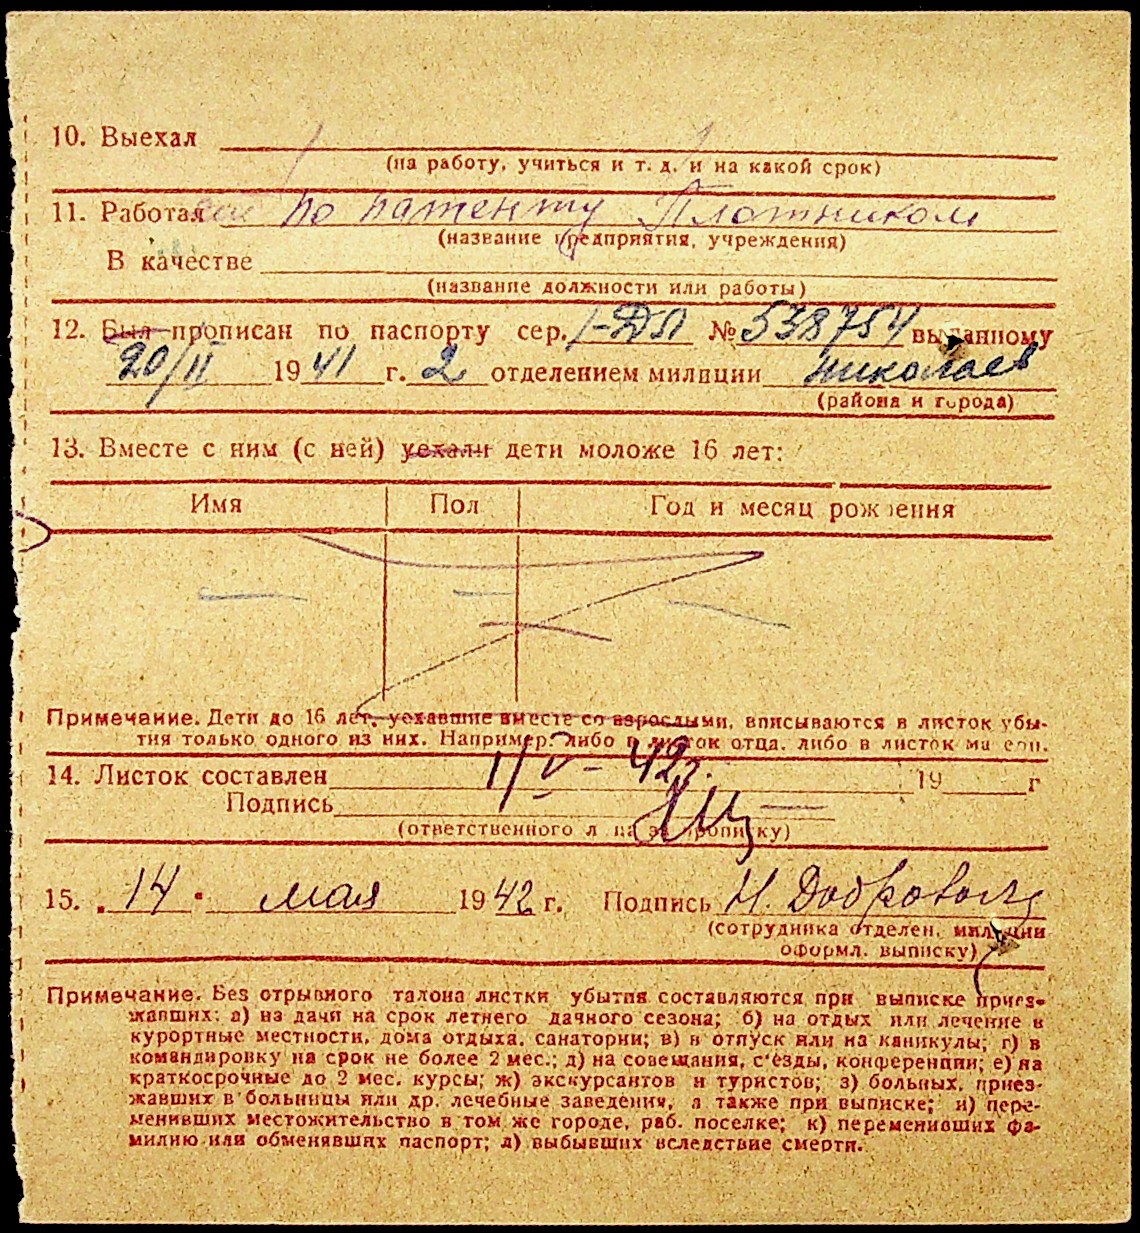 10. Выехал
(на работу, учиться и т. д. и на какой срок)
11. Работал по патенту Плотником
(название предприятия, учреждения)
В качестве
(название должности или работы)
12. Был прописан по паспорту сер. I-ДЛ № 538754 выданному
20/II 1941 г. 2 отделением милиции Николаев
(района и города)
13. Вместе с ним (с ней) уехали дети моложе 16 лет:
Имя Пол Год и месяц рождения
Примечание. Дети до 16 лет, уехавшие вместе со взрослыми, вписываются в листок убы-
тия только одного из них. Например: либо в листок отца, либо в листок матери.
14. Листок составлен 11/V-42г. 19 г
Подпись
(ответственного лица за прописку)
15. 14 мая 1942 г. Подпись Н. Доброволь
(сотрудника отделен. милиции
оформл. выписку)
Примечание. Без отрывного талона листки убытия составляются при выписке приез-
жавших: а) на дачи на срок летнего дачного сезона; б) на отдых или лечение в
курортные местности, дома отдыха, санатории; в) в отпуск или на каникулы; г) в
командировку на срок не более 2 мес.; д) на совещания, с'езды, конференции; е) на
краткосрочные до 2 мес. курсы; ж) экскурсантов и туристов; з) больных, приез-
жавших в больницы или др. лечебные заведения, а также при выписке; и) пере-
менивших местожительство в том же городе, раб. поселке; к) переменивших фа-
милию или обменявших паспорт; л) выбывших вследствие смерти.